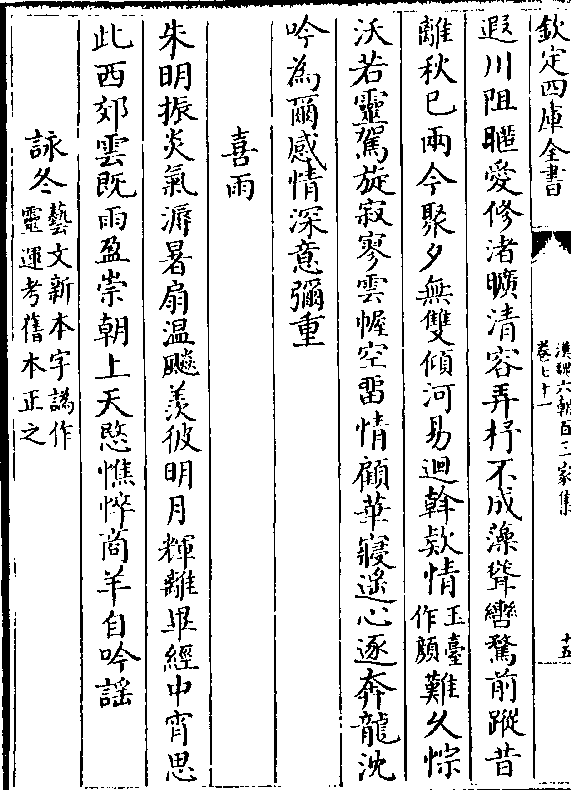 欽定四庫全書
漢魏六朝百三家集
卷七十一
十五
遐川阻暱愛修渚曠清容弄杼不成藻聳轡騖前蹤昔
離秋巳兩今聚夕無雙傾河易迴斡欵情玉臺作顔難久悰
沃若靈駕旋寂寥雲幄空畱情顧華寢遥心逐奔龍沈
吟為爾感情深意彌重
喜雨
朱明振炎氣溽暑扇温飈羡彼明月輝離畢經中宵思
此西郊雲既雨盈崇朝上天愍憔悴商羊自吟謡
詠冬藝文新本字譌作靈運考舊本正之